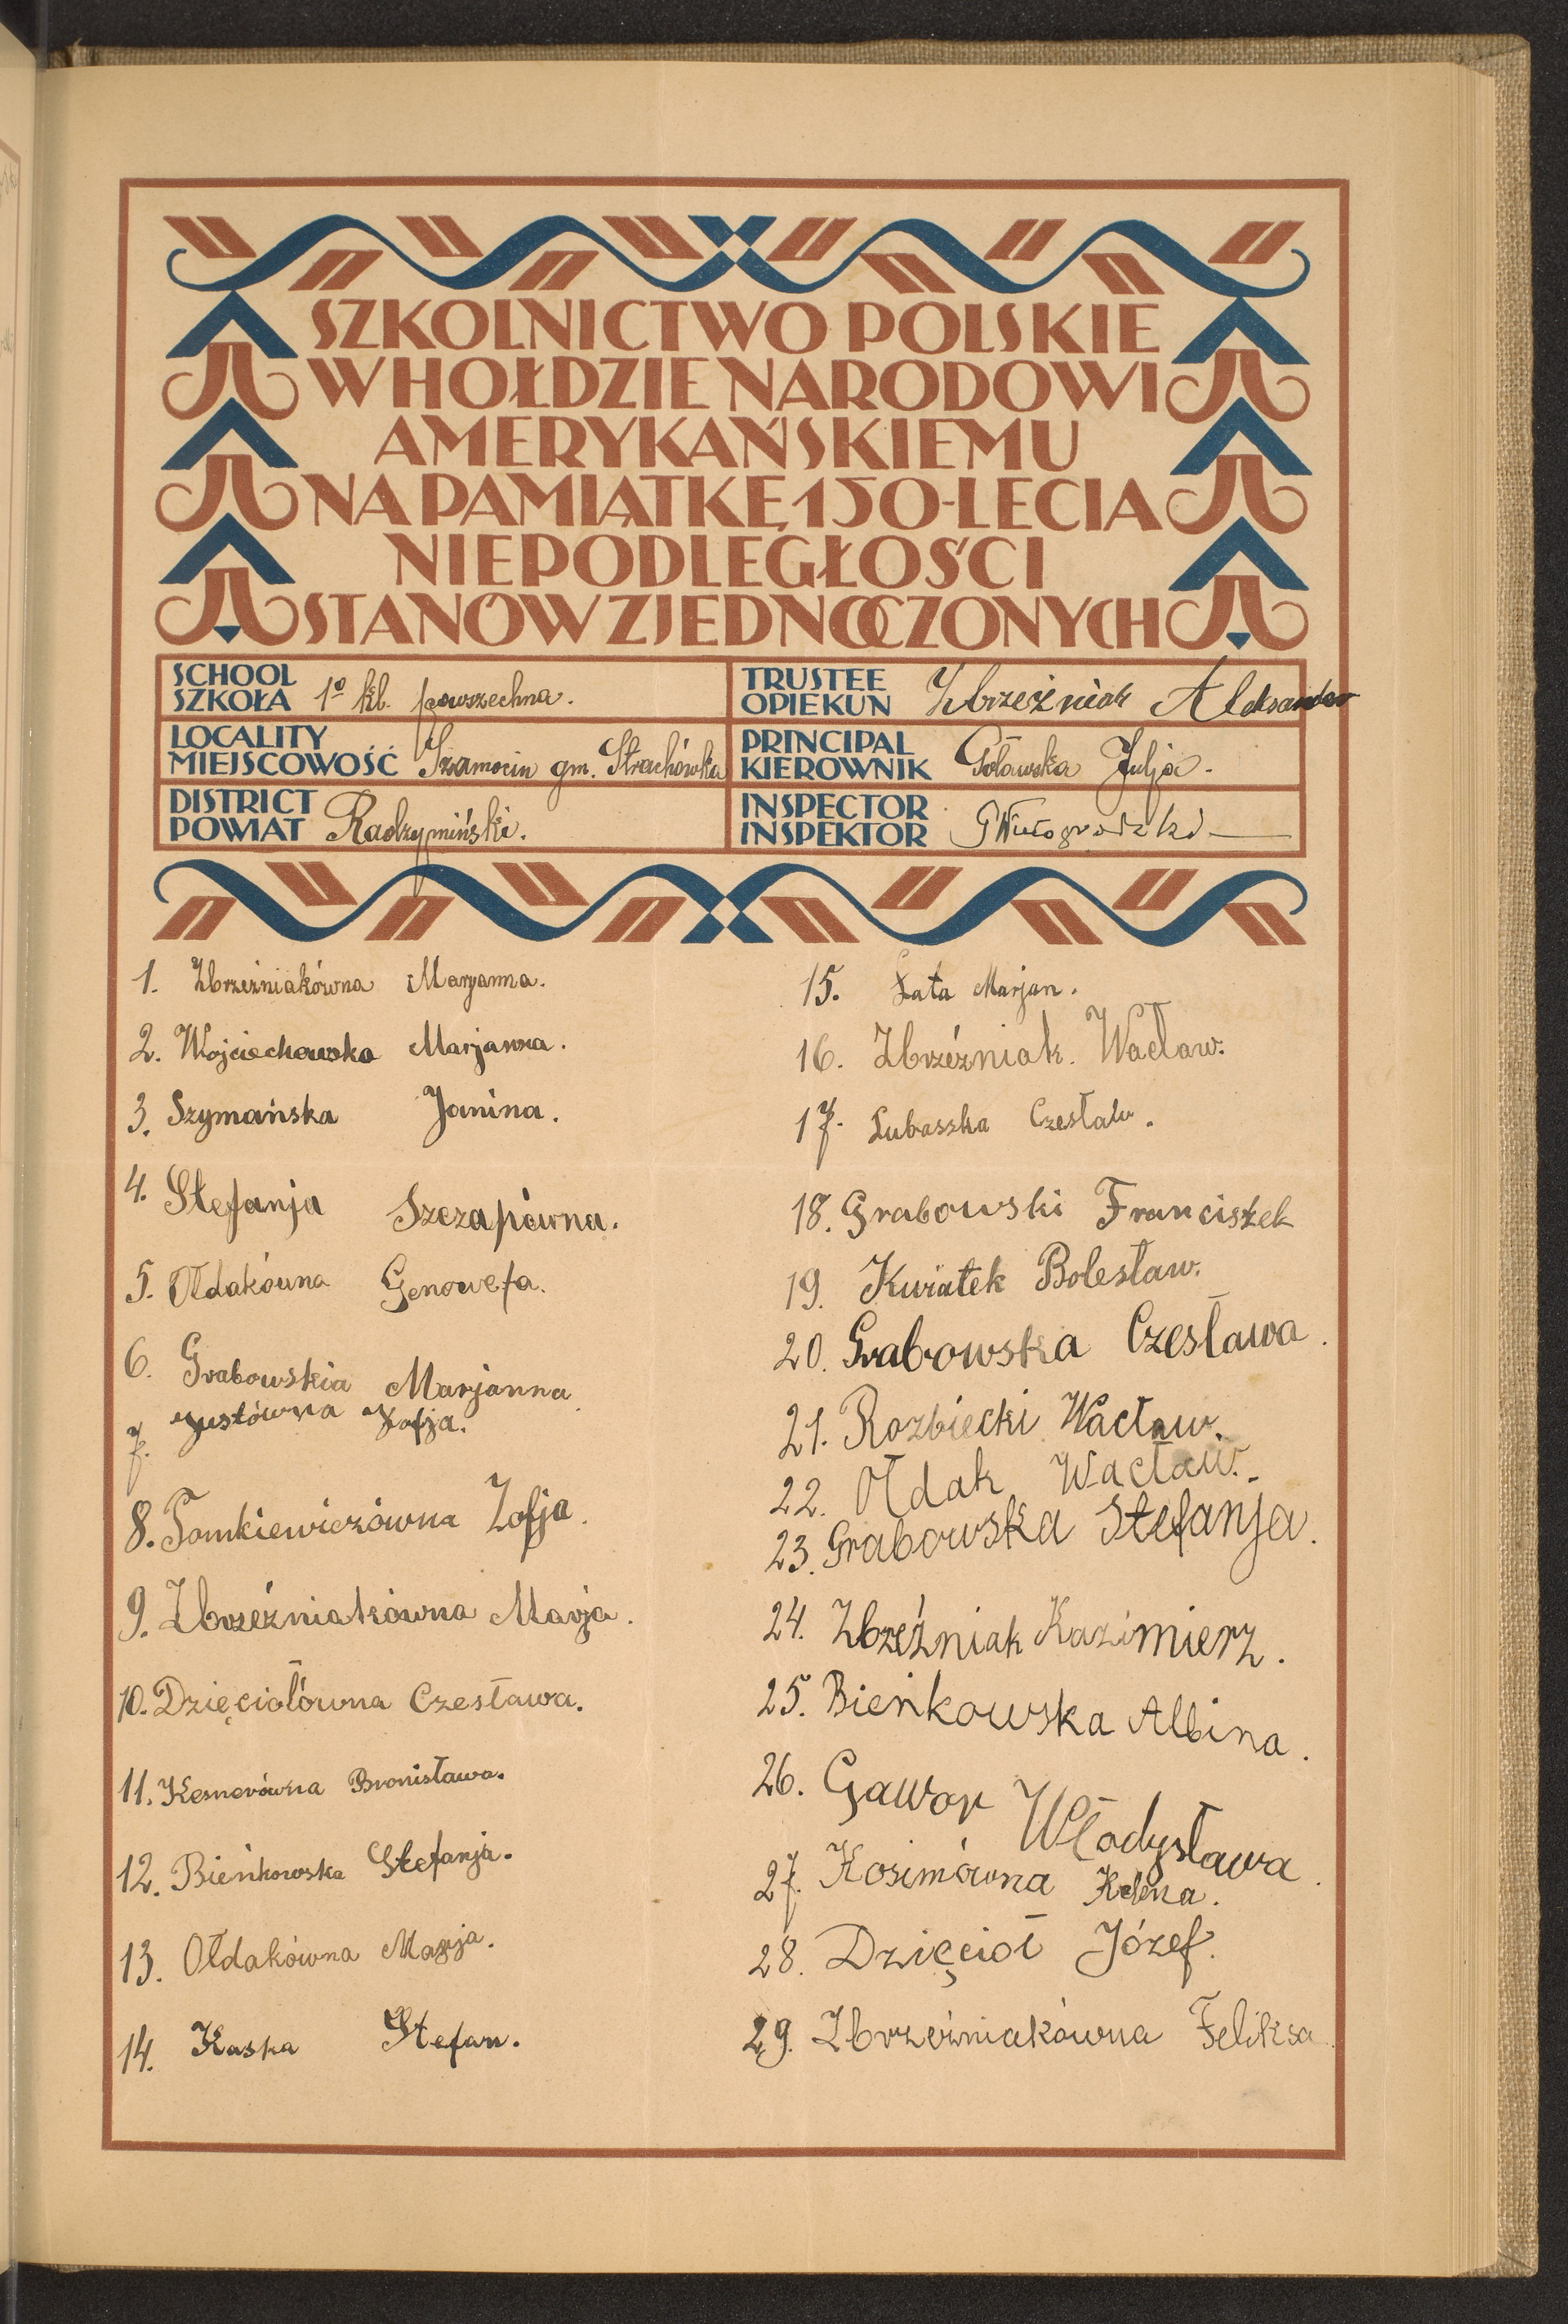 SZKOLNICTWO POLSKIE
W HOŁDZIE NARODOWI
AMERYKAŃSKIEMU
NA PAMIĄTKĘ 150-LECIA
NIEPODLEGŁOŚCI
STANÓW ZJEDNOCZONYCH
SCHOOL
SZKOŁA 1º kl. powszechna.
TRUSTEE
OPIEKUN Zbrzeźniak Aleksander
LOCALITY
MIEJSCOWOŚĆ Szamocin gm. Strachówka
PRINCIPAL
KIEROWNIK Goławska Julja.
DISTRICT
POWIAT Radzymiński.
INSPECTOR
INSPEKTOR
1. Zbrzeźniakówna Maryanna.
2. Wojciechowska Marjanna.
3. Szymańska Janina.
4. Stefanja Szczapówna.
5. Ołdakówna Genowefa.
6. Grabowskia Marjanna.
7. Justówna Zofja.
8. Tomkiewiczówna Zofja.
9. Zbrzeźniakówna Marja.
10. Dzięciołówna Czesława.
11. Kesnerówna Bronisława.
12. Bieńkowska Stefanja.
13. Ołdakówna Marja.
14. Kaska Stefan.
15. Łata Marjan.
16. Zbrzeźniak. Wacław.
17. Lubaszka Czesław.
18. Grabowski Franciszek
19. Kwiatek Bolesław.
20. Grabowska Czesława.
21. Rozbiecki Wacław.
22. Ołdak Wacław.
23. Grabowska Stefanja.
24. Zbrzeźniak Kazimierz.
25. Bieńkowska Albina.
26. Gawor Władysława.
27. Kosimówna Helena.
28. Dzięcioł Józef.
29. Zbrzeźniakówna Feliksa.